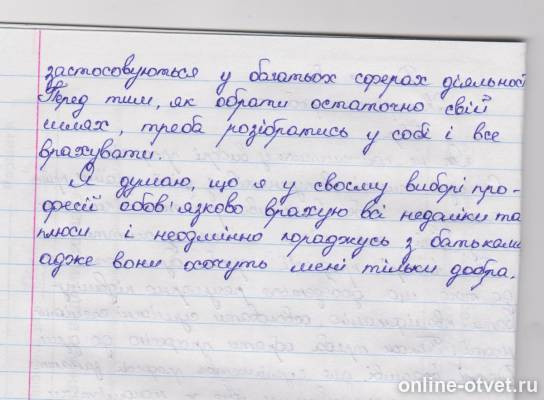 застосовуються у багатьох сферах діяльності
Перед тим, як обрати остаточно свій
шлях, треба розібратись у собі і все
врахувати.
Я думаю, що я у своєму виборі про-
фесії обов'язково врахую всі недоліки та
плюси і неодмінно пораджусь з батьками
адже вони хочуть мені тільки добра.
online-otvet.ru